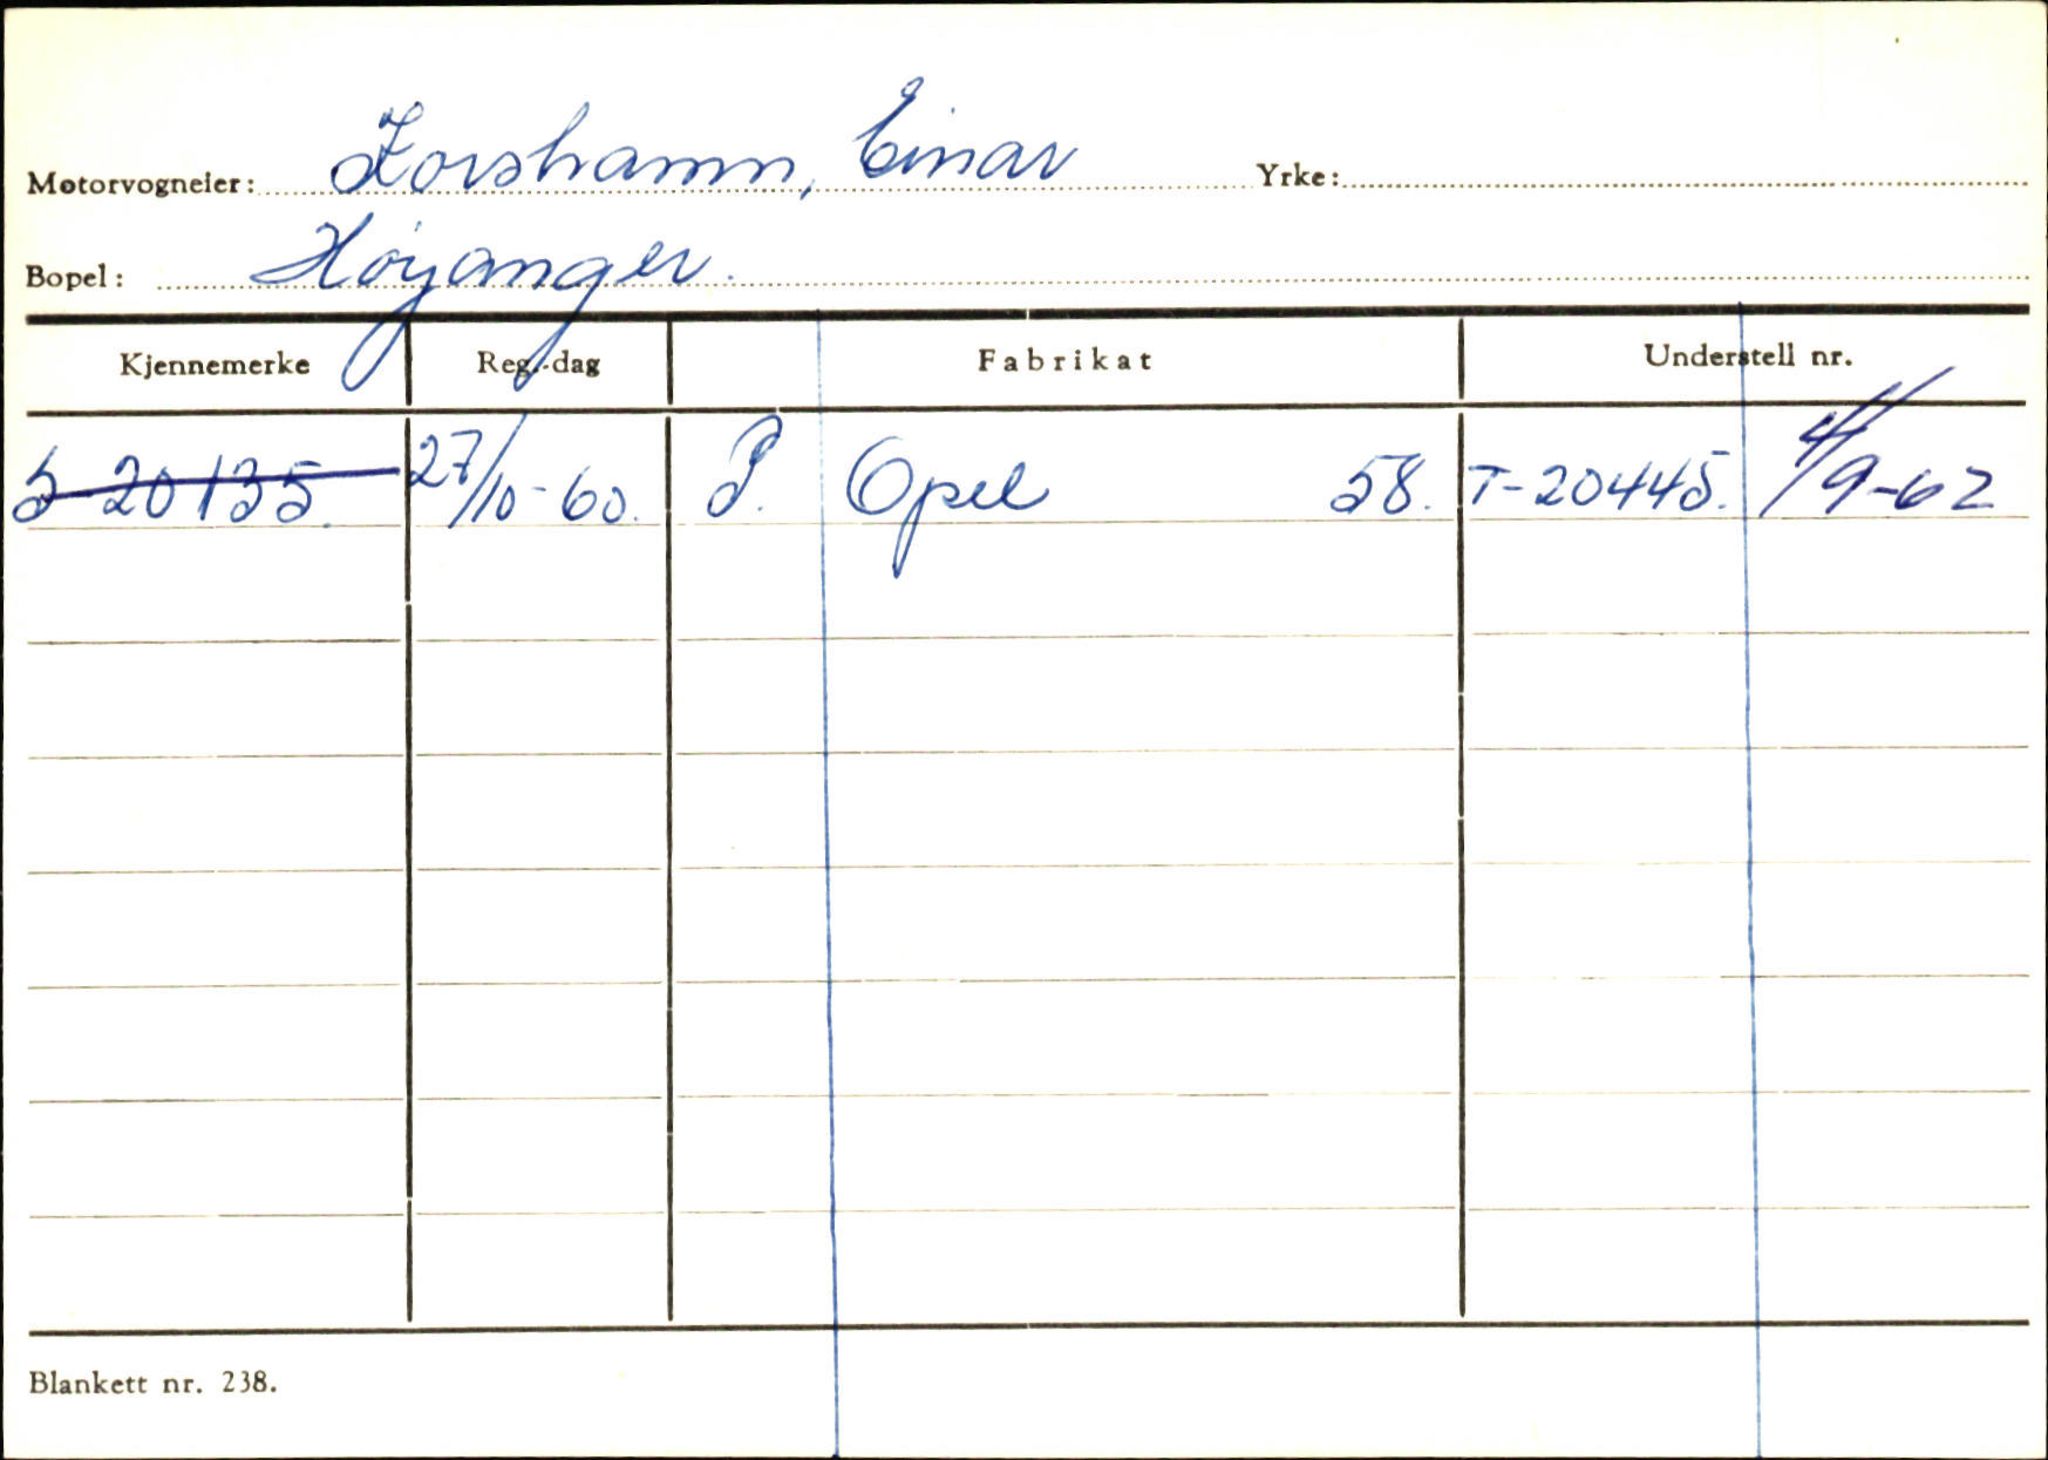 Motorvogneier: Torshamn, Einar Yrke:
Bopel: Høyanger.
Kjennemerke Reg.-dag Fabrikat Understell nr.
S-20135. 27/10-60. P. Opel 58. T-20445. 4/9-62
Blankett nr. 238.